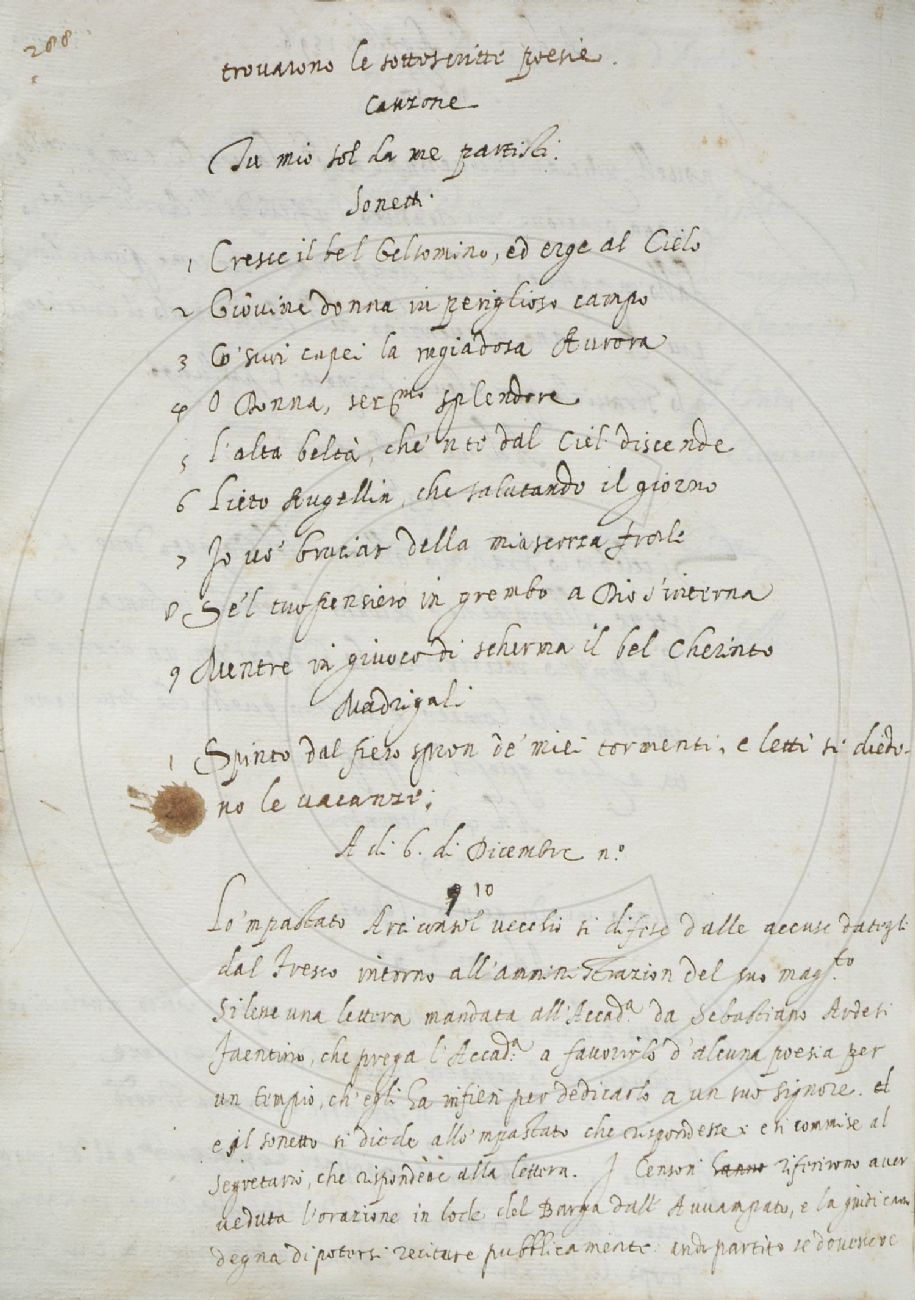 288.
trovarono le sottoscritte poesie.
Canzone
Tu mio sol da me partisti.
Sonetti
1 Cresce il bel Gelsomino, ed erge al Cielo
2 Giovine donna in periglioso campo
3 Co' suoi capei la rugiadosa Aurora
4 O Donna, ser.mo splendore
5 L'alta beltà, che 'n te dal Ciel discende
6 Lieto Augellin, che salutando il giorno
7 Io vo' bruciar della mia scorza frale
8 Se'l tuo pensiero in grembo a Dio s'interna
9 Mentre in giuoco di scherma il bel Cherinto
Madrigali
1 Spinto dal fiero spron de' miei tormenti, e letti si diedo-
no le vacanze;
A di 6. di Dicembre n.o
9 10
Lo 'mpastato Arciconsol vecchio si difese dalle accuse dategli
dal Fresco intorno all'amministrazion del suo mag.to
Si lesse una lettera mandata all'Accad.a da Sebastiano Ardesi
Faentino, che prega l'Accad.a a favorirlo d'alcuna poesia per
un tempio, ch'egli ha in fieri per dedicarlo a un suo signore. el
e il sonetto si diede allo 'mpastato che rispondesse: e si commise al
segretario, che rispondesse alla lettera. I Censori hanno riferirono aver
veduta l'orazione in lode del Barga dall' Avvampato, e la giudicaron
degna di potersi recitare pubblicamente. andò partito se dovesse